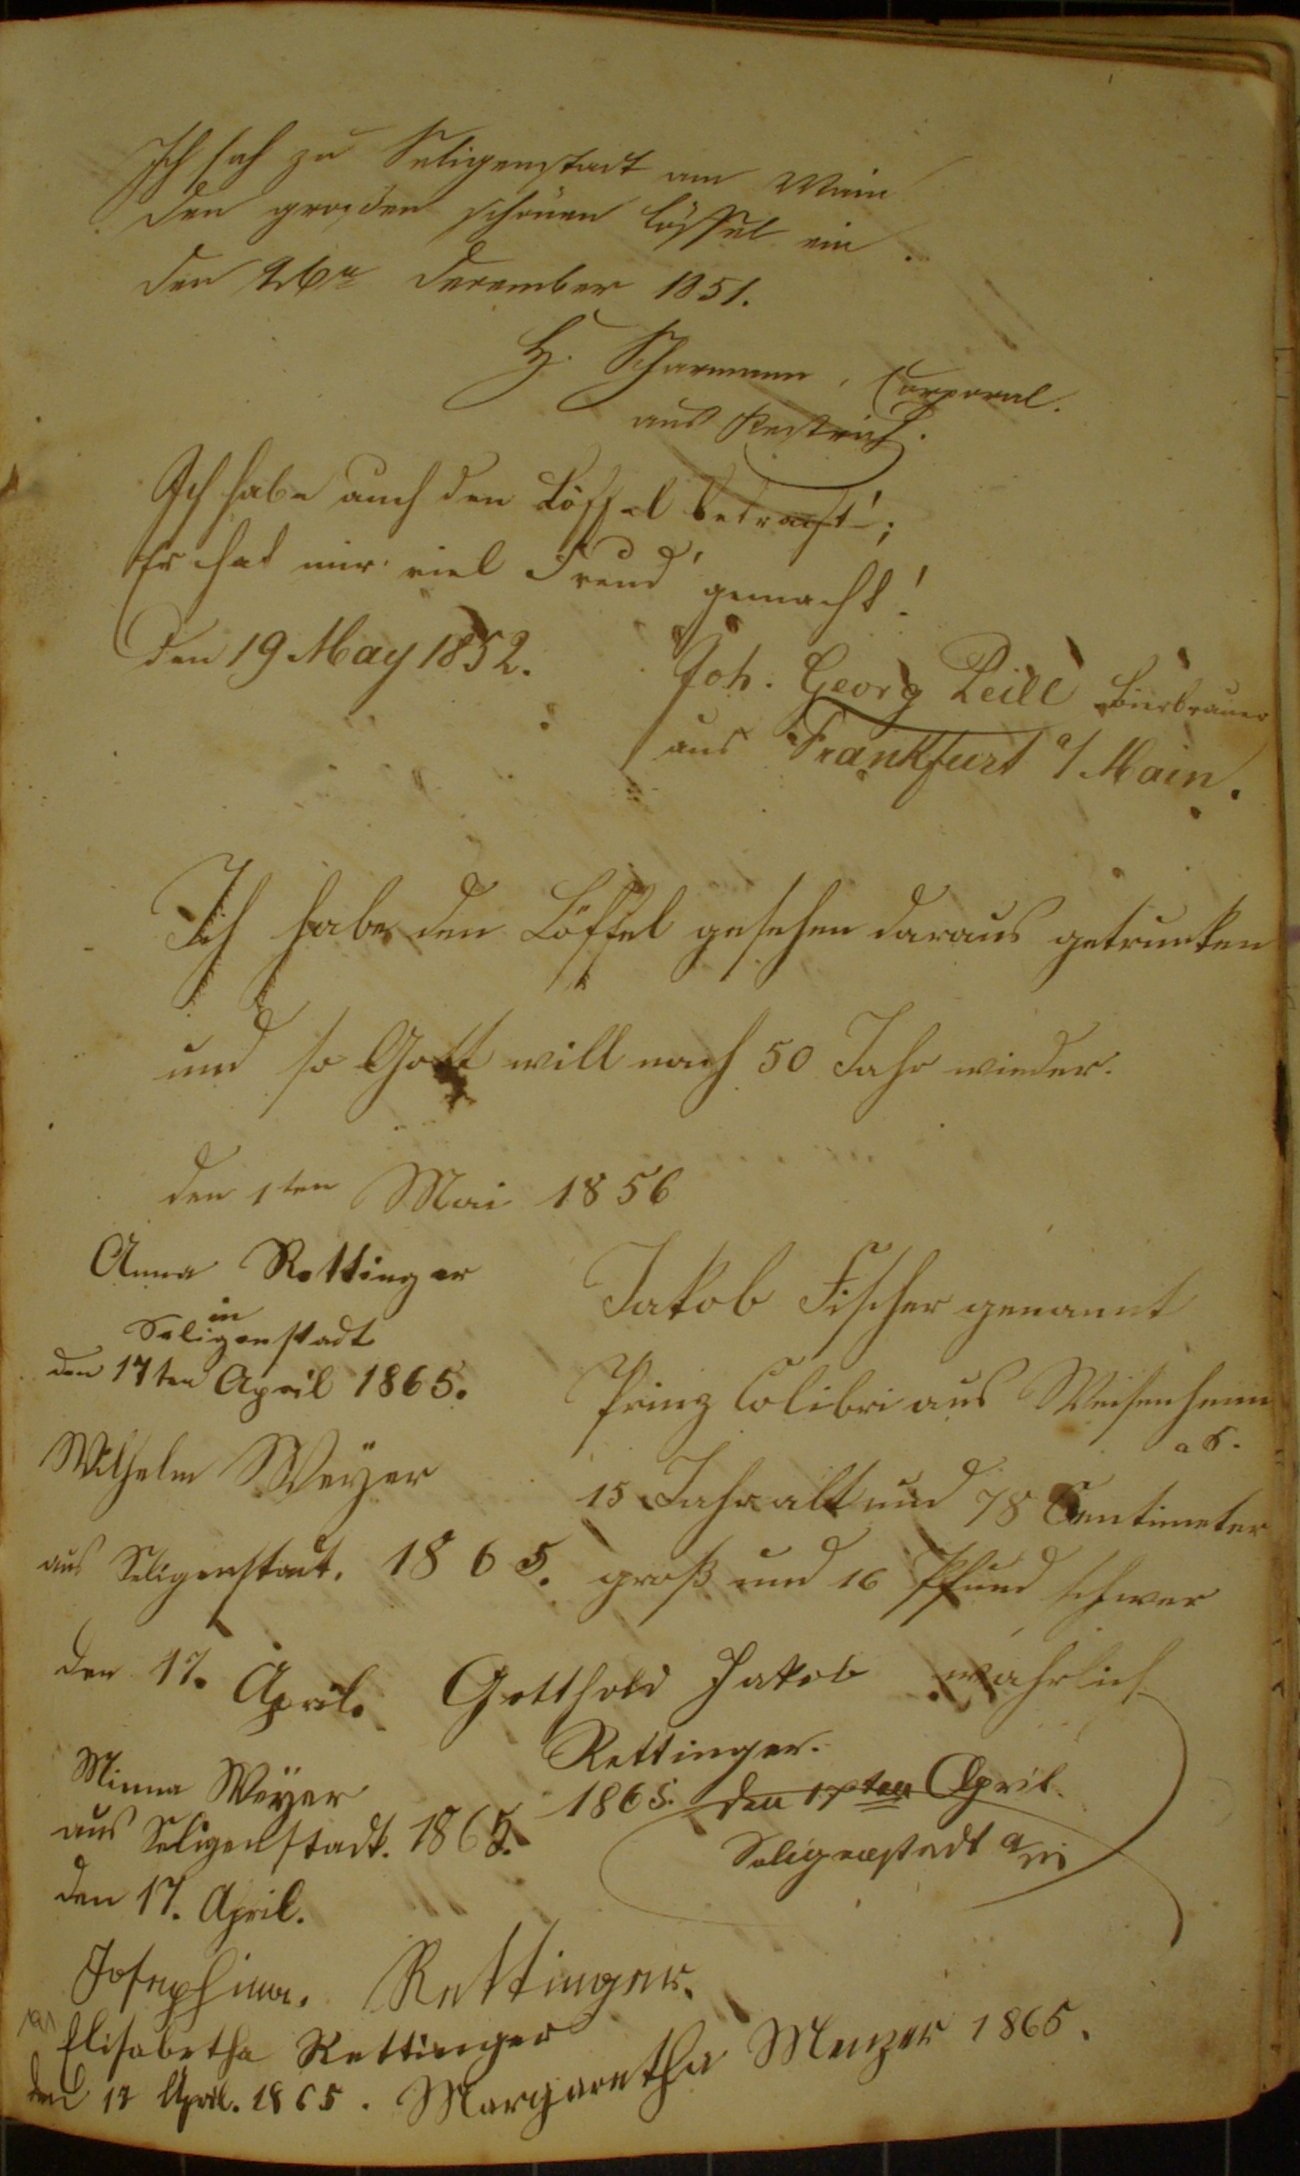 Ich sah zu Seligenstadt am Main
den großen schönen Löffel ein.
den 26n Dezember 1851.
H. Scharmann, Corporal.
aus
Ich habe auch den Löffel betracht';
Er hat mir viel Freud' gemacht!
den 19 May 1852.
Joh. Georg Reill Bierbrauer
aus Frankfurt a/Main.
Ich habe den Löffel gesehen daraus getrunken
und so Gott will nach 50 Jahr wieder.
den 1ten Mai 1856
Jakob Fischer genannt
Prinz Colibri aus Weisenheim
a S.
15 Jahr alt und 78 Centimeter
groß und 16 Pfund schwer
wahrlich
Anna Rettinger
in
Seligenstadt
den 17ten April 1865.
Wilhelm Weÿer
aus Seligenstadt. 1865.
den 17. April.
Gotthold Jakob
Rettinger.
1865. den 17ten April.
Seligenstadt a/M
Minna Weÿer
aus Seligenstadt. 1865.
den 17. April.
Josephina. Rettinger.
Elisabetha Rettinger
den 17 April. 1865.
Margaretha Menzer 1865.